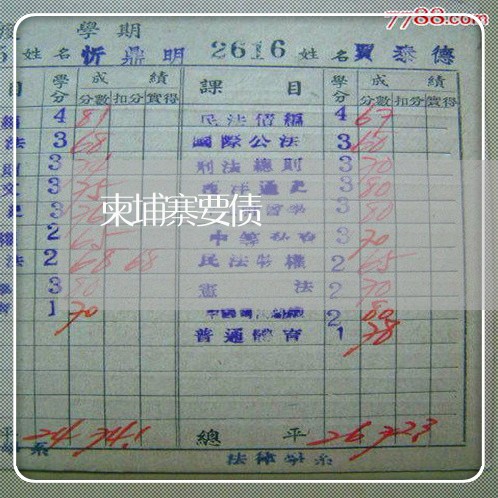 7788.com
學期
姓名 忻鼎明 2616 姓名 賈泰德
目 學分 成績 課目 學分 成績
分數 扣分 實得 分數 扣分 實得
4 81 民法債編 4 67
法 3 68 國際公法 3 60
3 刑法總則 3 70
3 75 西洋通史 3 80
3 3 80
2 65 3 70
法 2 68 68 民法物權 2 65
3 80 憲法 2 70
1 70 2 80
普通體育 1 78
柬埔寨要债
平 24 74.1 總平 26 72.3
系 法律學系